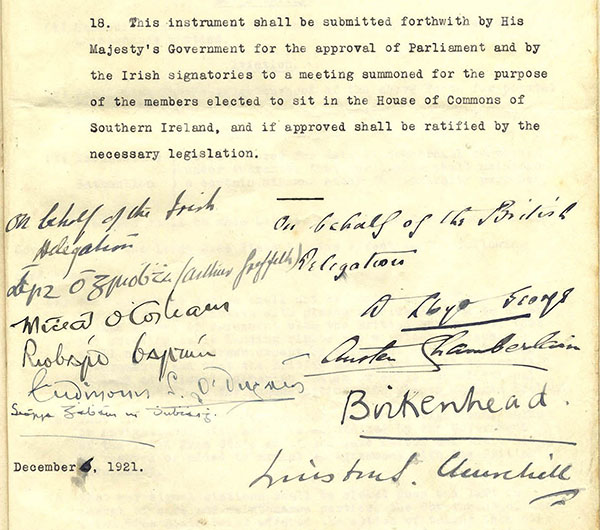 18. This instrument shall be submitted forthwith by His
Majesty's Government for the approval of Parliament and by
the Irish signatories to a meeting summoned for the purpose
of the members elected to sit in the House of Commons of
Southern Ireland, and if approved shall be ratified by the
necessary legislation.
On behalf of the Irish
Delegation
Art Ó Gríobhtha (Arthur Griffith)
Micheál Ó Coileain
Riobárd Bartún
Eudhmonn S. Ó Dugáin
Seórsa Ghabháin Uí Dhubhthaigh
December 6, 1921.
On behalf of the British
Delegation
D Lloyd George
Austen Chamberlain
Birkenhead.
Winston S. Churchill